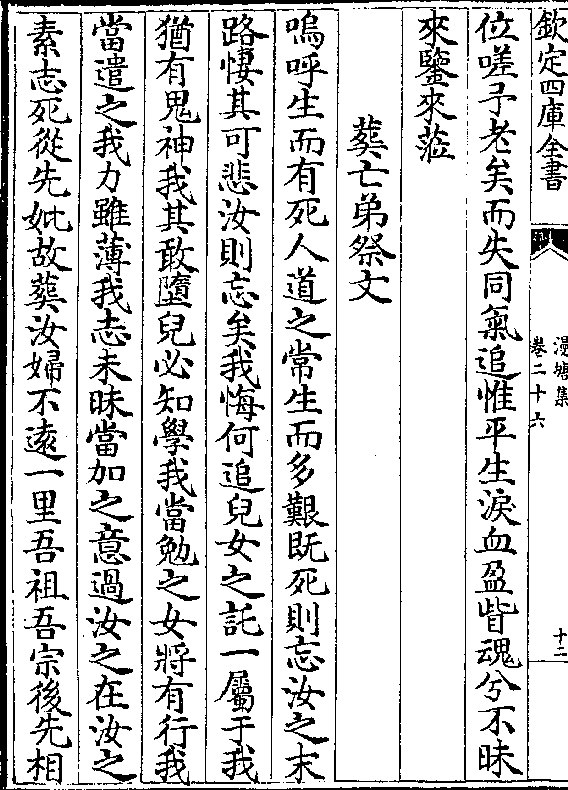 欽定四庫全書
漫塘集
卷二十六
十二
位嗟予老矣而失同氣追惟平生淚血盈眥魂兮不昧
來鑒來蒞
葬亡弟祭文
嗚呼生而有死人道之常生而多艱既死則忘汝之末
路悽其可悲汝則忘矣我悔何追兒女之託一屬于我
猶有鬼神我其敢墮兒必知學我當勉之女將有行我
當遣之我力雖薄我志未昧當加之意過汝之在汝之
素志死從先妣故葬汝婦不遠一里吾祖吾宗後先相